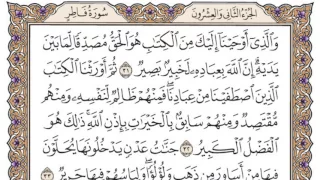 الجزء الثاني والعشرون
سورة فاطر
وَالَّذِي أَوْحَيْنَا إِلَيْكَ مِنَ الْكِتَٰبِ هُوَ الْحَقُّ مُصَدِّقًا لِّمَا بَيْنَ
يَدَيْهِ إِنَّ اللَّهَ بِعِبَادِهِ لَخَبِيرٌ بَصِيرٌ ٣١ ثُمَّ أَوْرَثْنَا الْكِتَٰبَ
الَّذِينَ اصْطَفَيْنَا مِنْ عِبَادِنَا فَمِنْهُمْ ظَالِمٌ لِّنَفْسِهِ وَمِنْهُم
مُّقْتَصِدٌ وَمِنْهُمْ سَابِقٌ بِالْخَيْرَٰتِ بِإِذْنِ اللَّهِ ذَٰلِكَ هُوَ
الْفَضْلُ الْكَبِيرُ ٣٢ جَنَّٰتُ عَدْنٍ يَدْخُلُونَهَا يُحَلَّوْنَ
فِيهَا مِنْ أَسَاوِرَ مِن ذَهَبٍ وَلُؤْلُؤًا وَلِبَاسُهُمْ فِيهَا حَرِيرٌ ٣٣